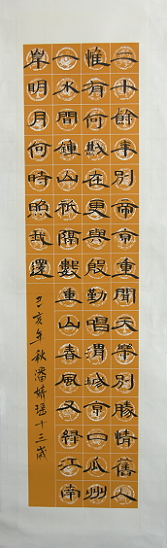 二十餘年別帝京重聞天樂不勝情舊人
惟有何戡在更與殷勤唱渭城京口瓜州
一水間鍾山祇隔數重山春風又綠江南
岸明月何時照我還
己亥年秋潘婧瑶十三歲